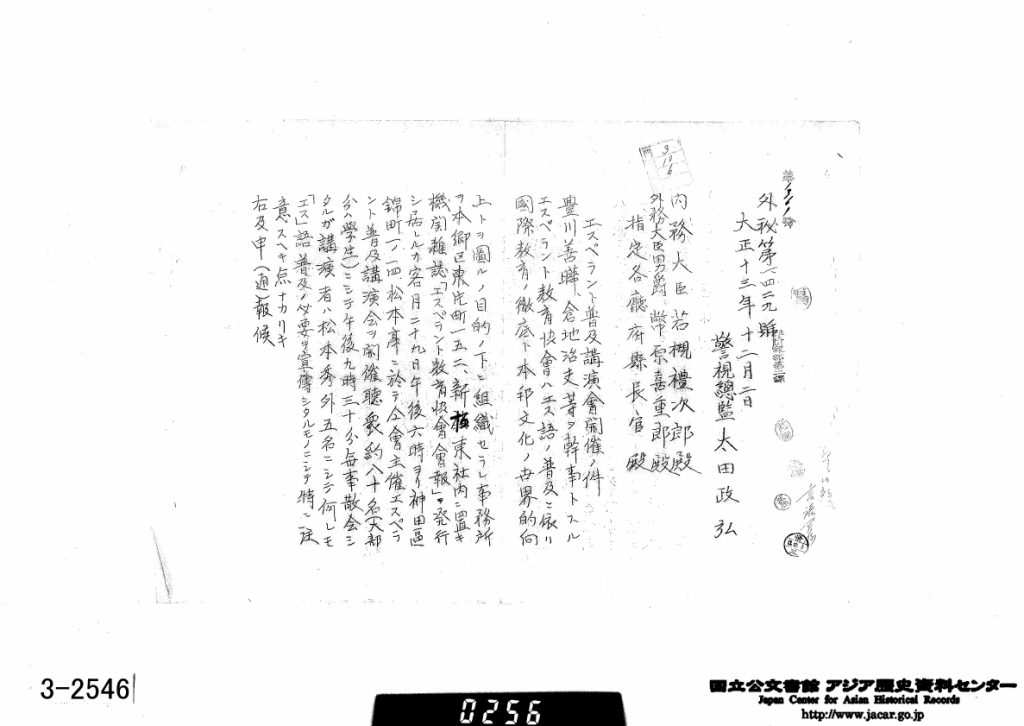 外秘第一四二九號
大正十三年十二月二日
警視總監 太田政弘
內務大臣 若槻禮次郎殿
外務大臣男爵 幣原喜重郎殿
指定各廳府縣長官殿
エスペラント普及講演會開催ノ件
豊川善曄、倉地治夫等ヲ幹事トスル
エスペラント教育協會ハエス語ノ普及ニ依リ
國際教育ノ徹底ト本邦文化ノ世界的向
上トヲ圖ルノ目的ノ下ニ組織セラレ事務所
ヲ本郷区東片町一五二、新極東社内ニ置キ
機関雜誌「エスペラント教育協會會報」ヲ発行
シ居レルカ客月二十九日午後六時ヨリ神田區
錦町一ノ一四、松本亭ニ於テ仝會主催エスペラ
ント普及講演会ヲ開催聴衆約八十名(大部
分ハ學生)ニシテ午後九時三十分無事散会シ
タルガ講演者ハ松本秀外五名ニシテ何レモ
「エス」語普及ノ必要ヲ宣傳シタルモノニシテ特ニ注
意スヘキ点ナカリキ
右及申(通)報候
3-2546
0256
国立公文書館 アジア歴史資料センター
Japan Center for Asian Historical Records
http://www.jacar.go.jp